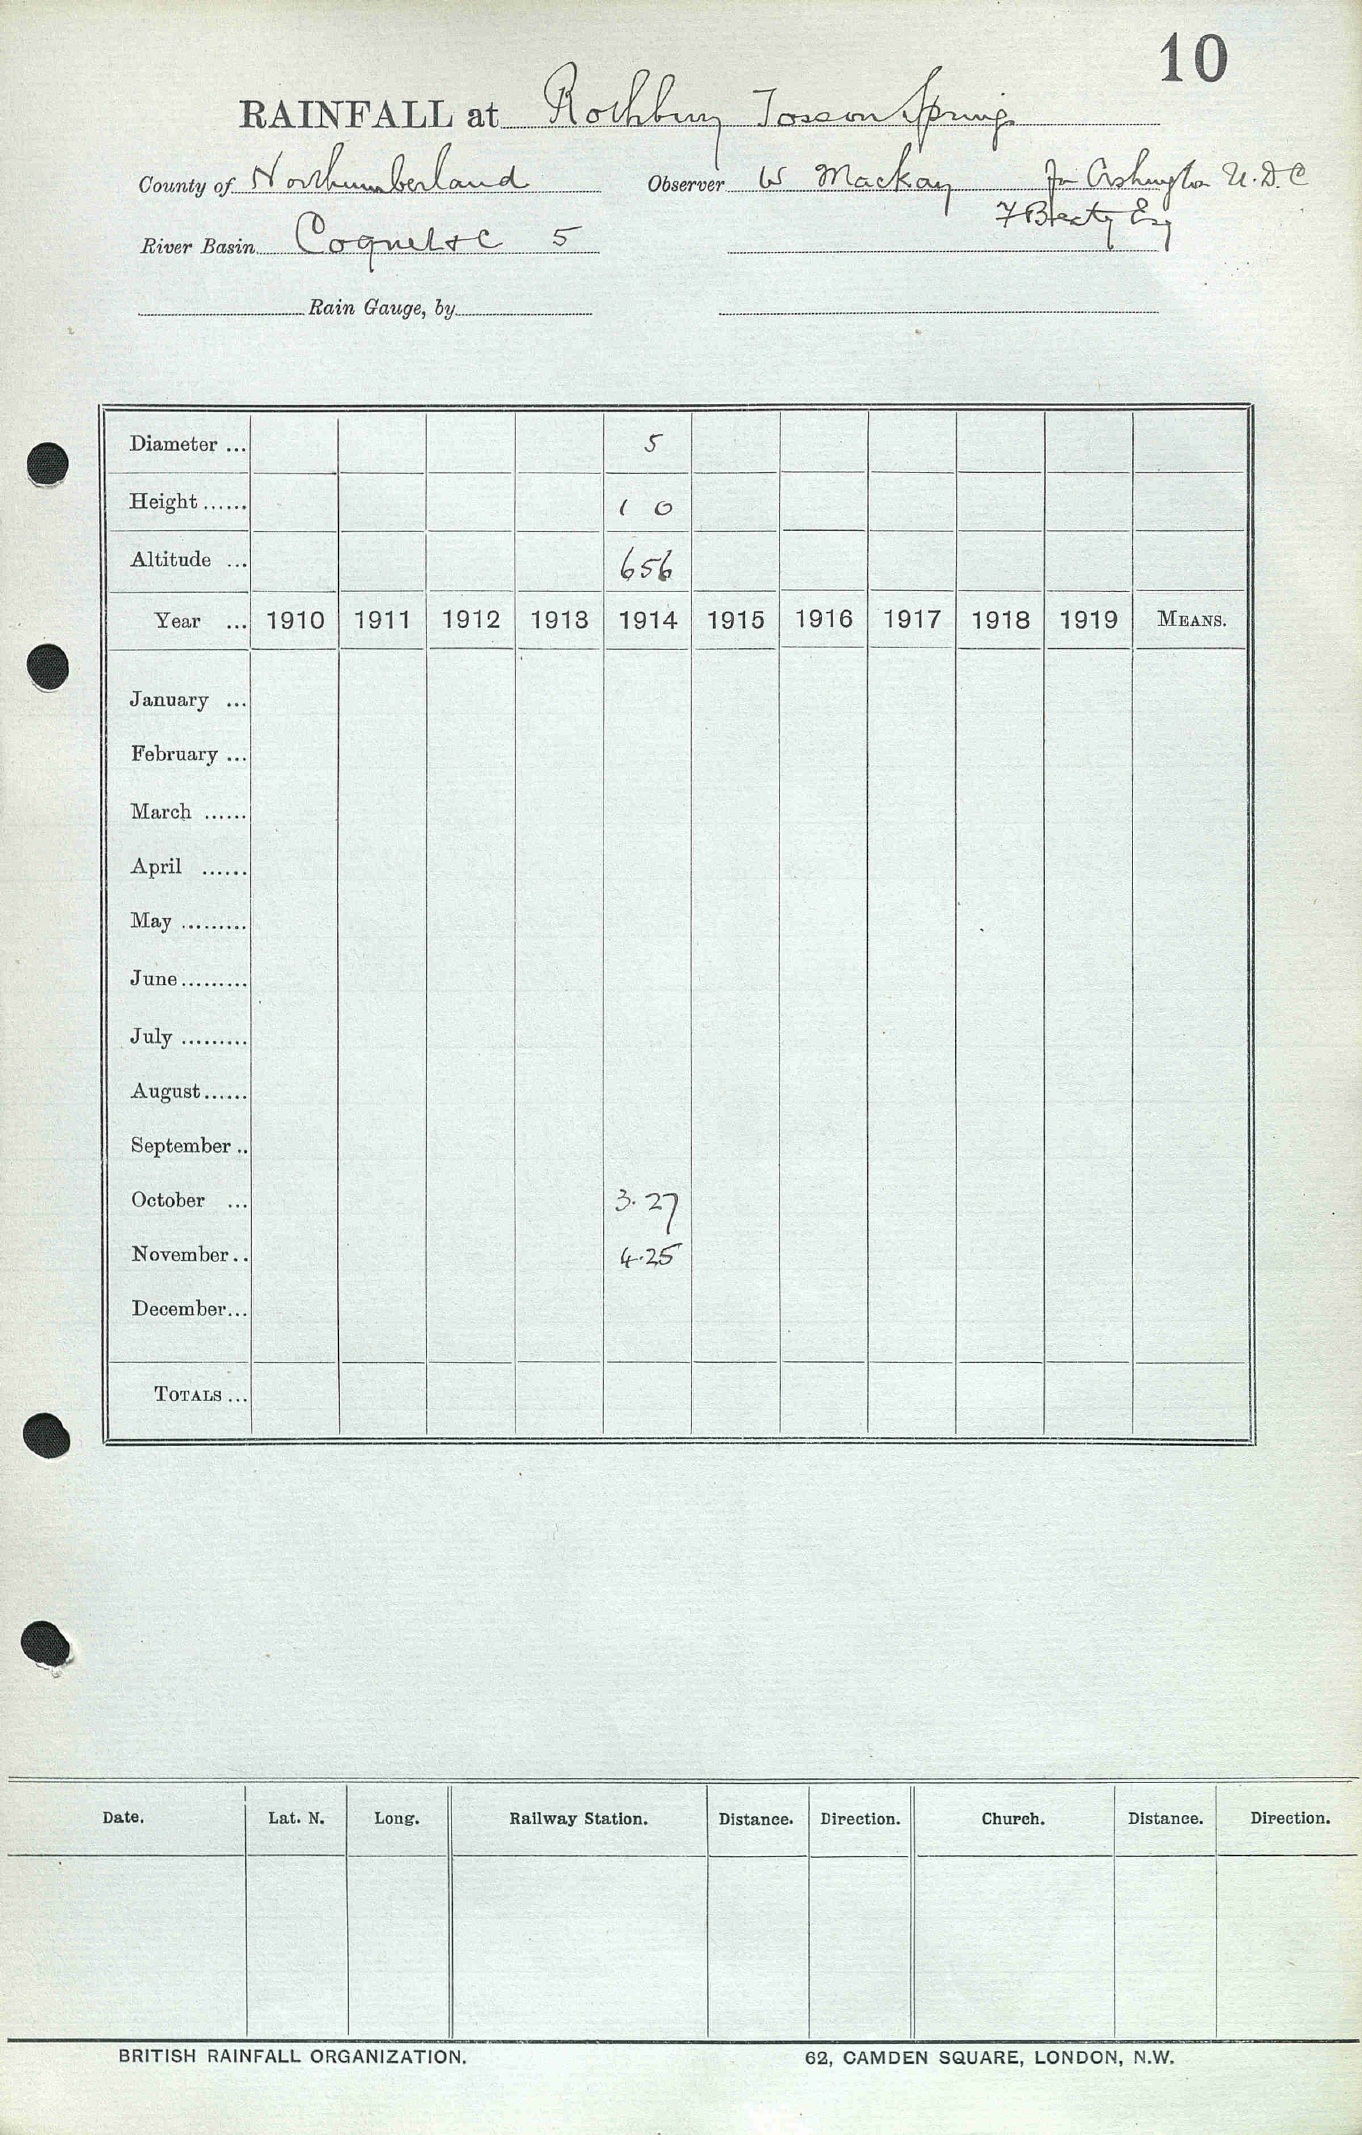 10
RAINFALL at Rothbury Tosson Springs
County of Northumberland Observer W Mackay for Ashington U.D.C
F Beaty Esq
River Basin Coquet & C 5
Rain Gauge, by
Diameter ... 5
Height ...... 1 0
Altitude ... 656
Year ... 1910 1911 1912 1913 1914 1915 1916 1917 1918 1919 MEANS.
January ...
February ...
March ......
April ......
May .........
June .........
July .........
August ......
September ..
October ... 3.27
November .. 4.25
December ...
TOTALS ...
Date. Lat. N. Long. Railway Station. Distance. Direction. Church. Distance. Direction.
BRITISH RAINFALL ORGANIZATION. 62, CAMDEN SQUARE, LONDON, N.W.